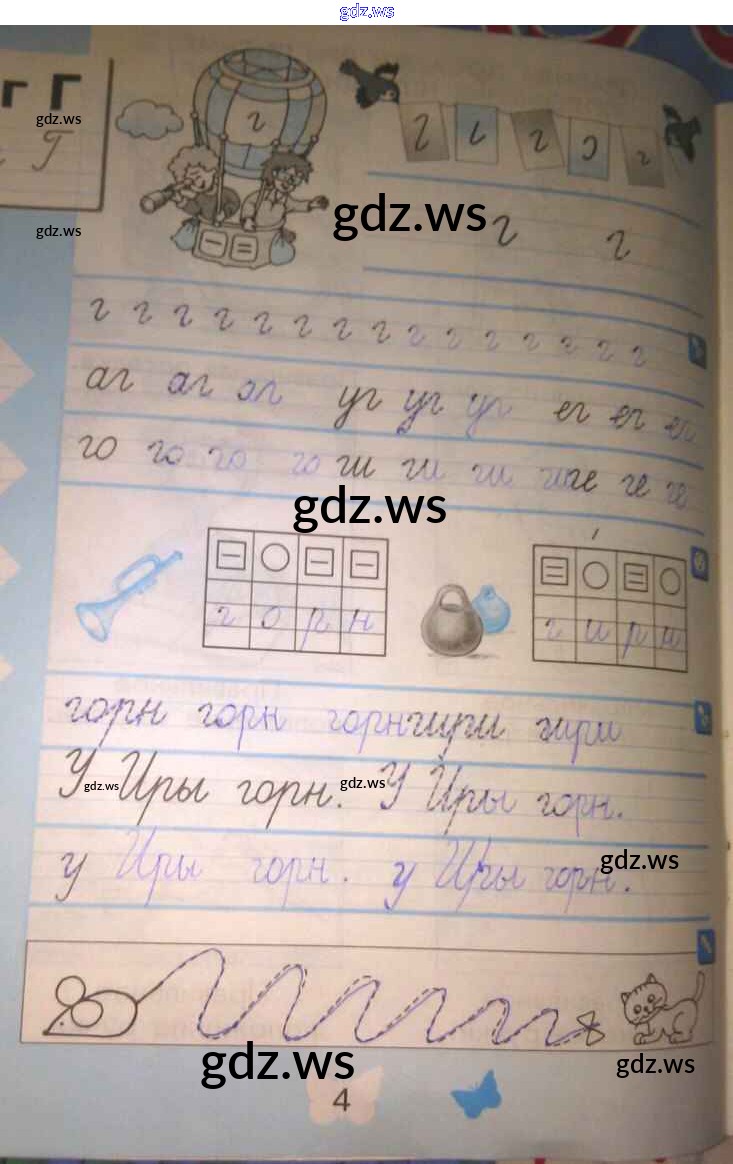 gdz.ws
г Г
gdz.ws
Г
г
г г г г
gdz.ws
gdz.ws
г г
г г г г г г г г г г г г г г г
аг аг аг уг уг уг ег ег ег
го го го го ги ги ги ги ге ге ге
gdz.ws
г о р н
г и р и
горн горн горн гири гири
У Иры горн. У Иры горн.
gdz.ws
gdz.ws
у Иры горн. у Иры горн.
gdz.ws
gdz.ws
gdz.ws
4